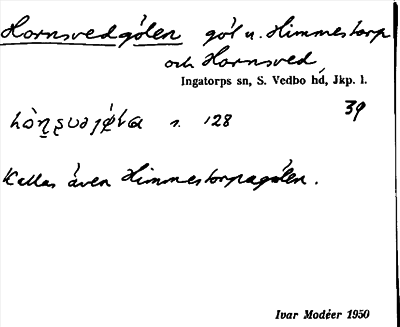 Hornsvedgölen göl u. Himmestorp
och Hornsved,
Ingatorps sn, S. Vedbo hd, Jkp. l.
39
s. 128
Kallas även Himmestorpagölen.
Ivar Modéer 1950